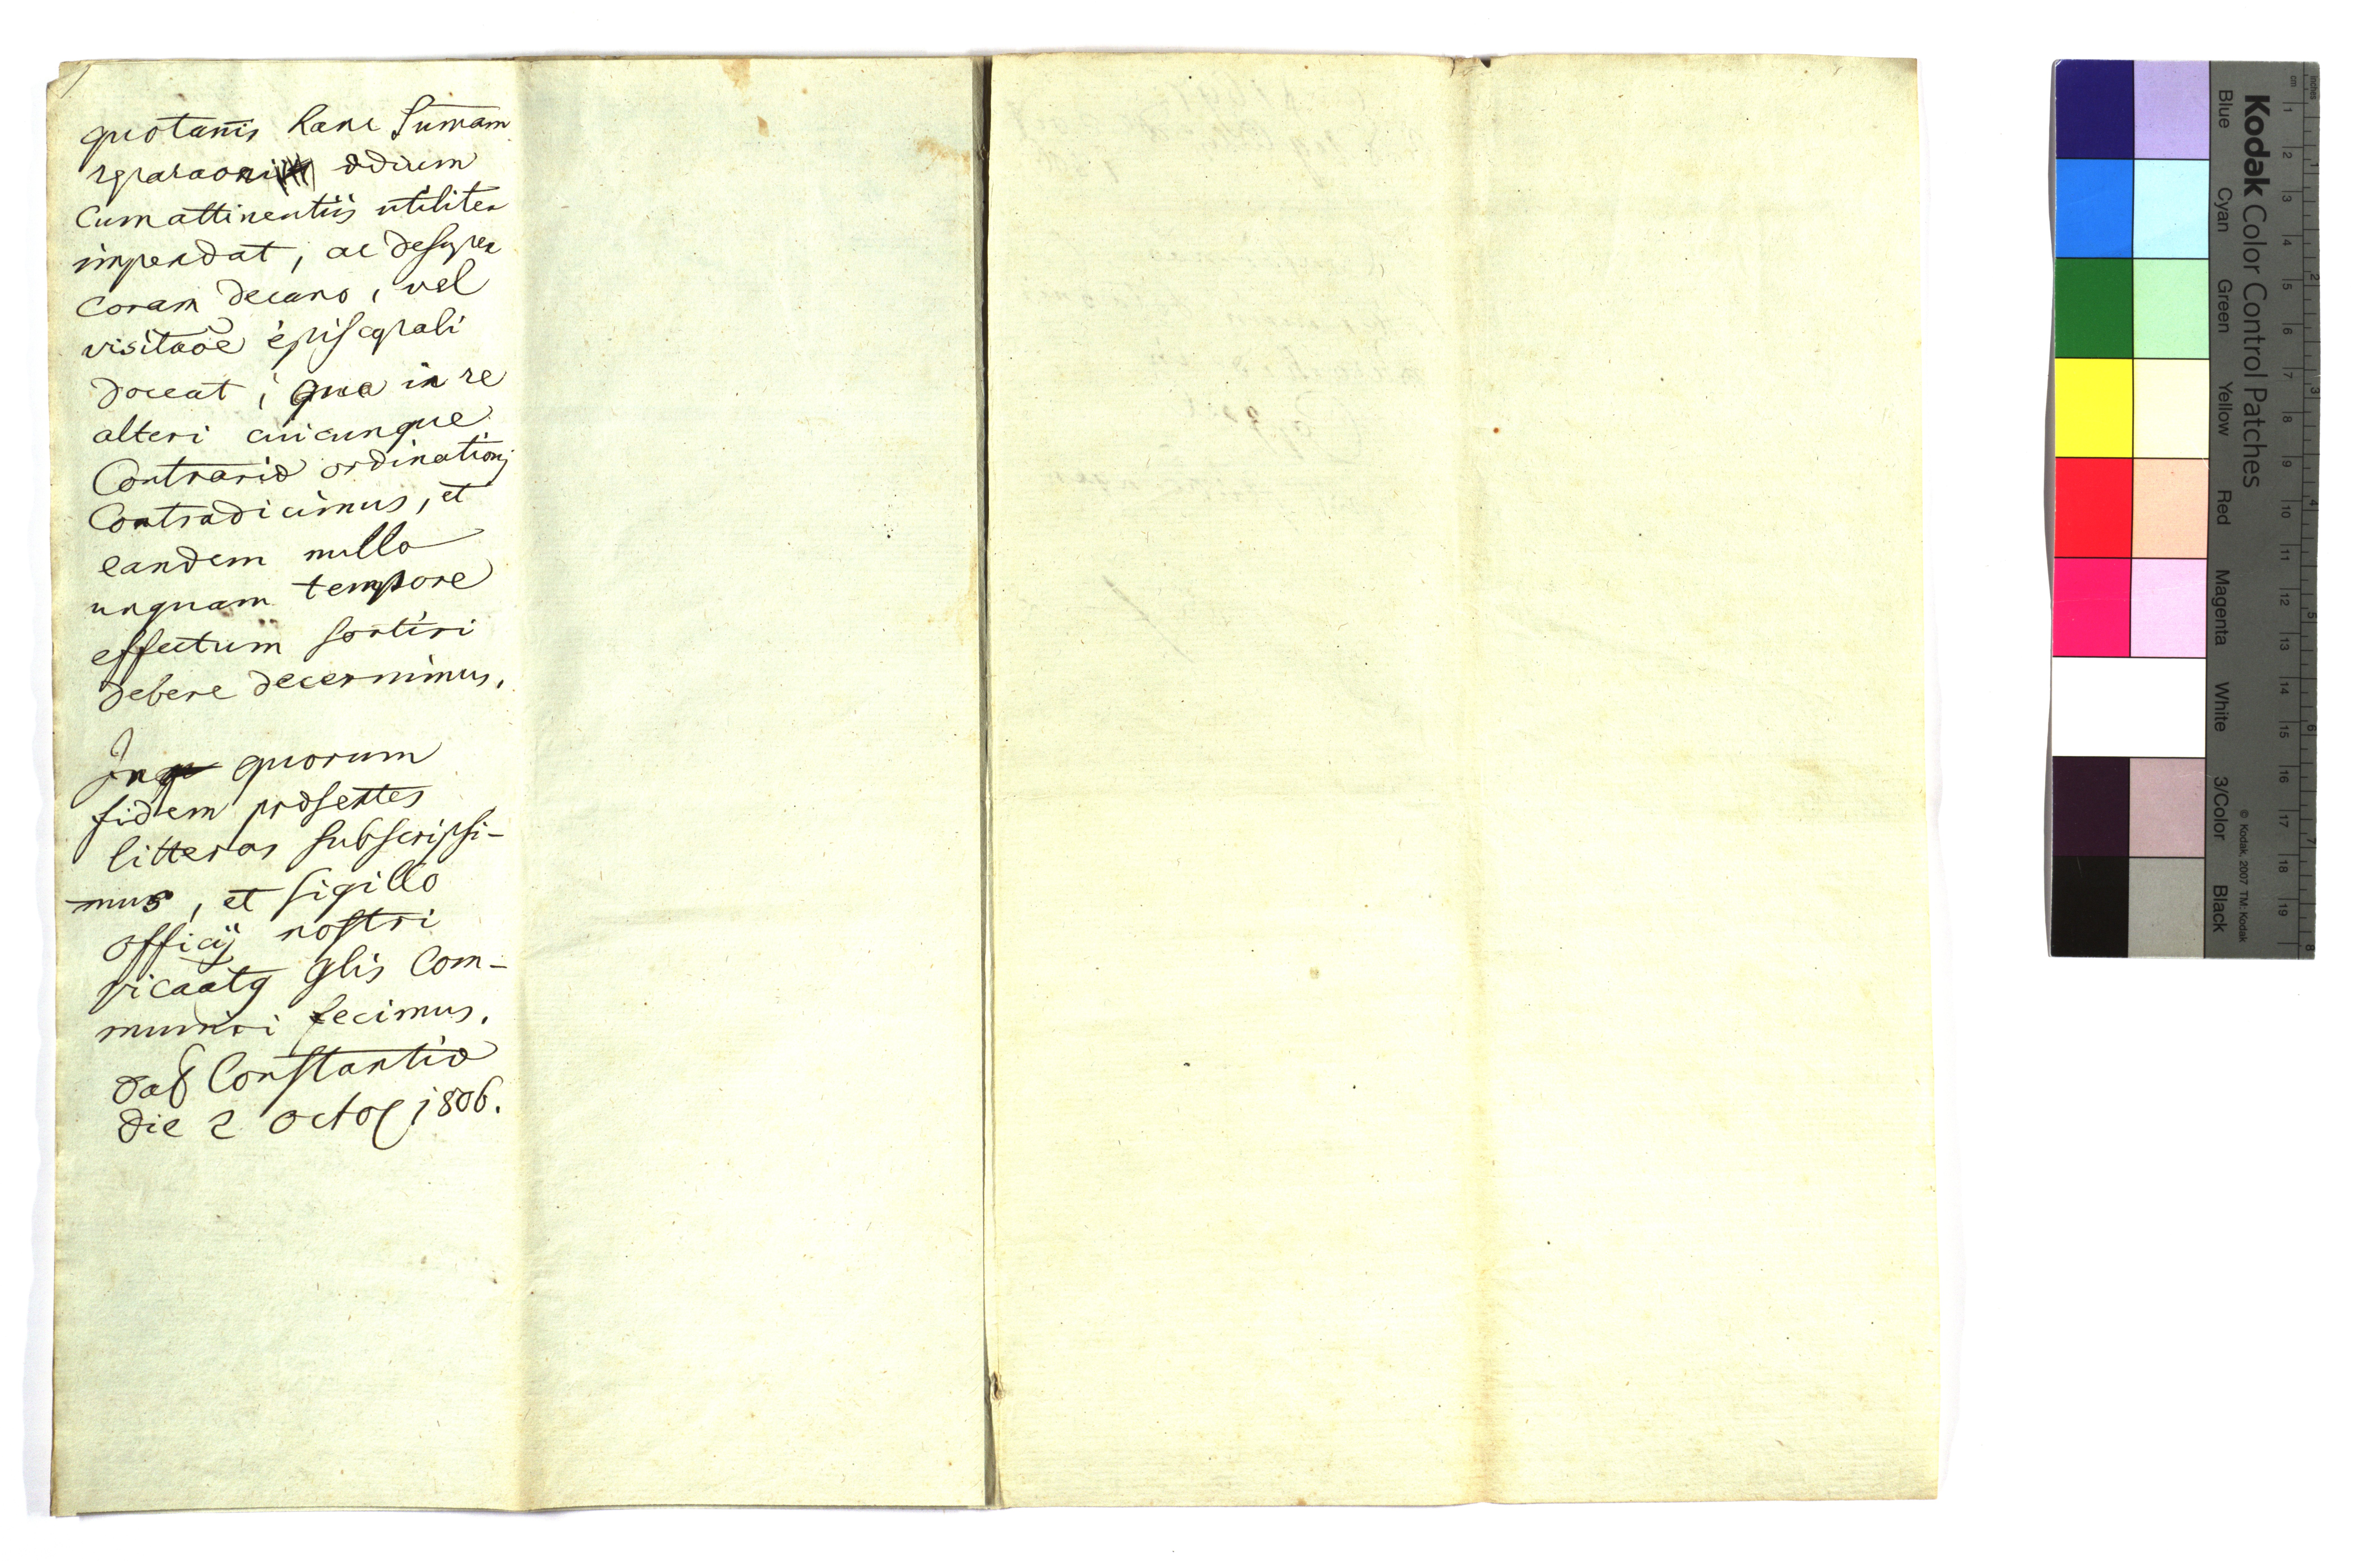 quotañis hanc Sum̄am
rparaoni ædium
Cum attinentiis utiliter
impendat, ac desuper
Coram Decano, vel
visitaõe episcopali
doceat, qua in re
alteri cuicunque
Contrariæ ordinationj
Contradicimus, et
eandem nullo
unquam tempore
effectum sortiri
debere decernimus.
In quorum
fidem præsentes
litteras subscripsi-
mus, et sigillo
officij nostri
vicaatg glis Com-
muniri fecimus.
dat Constantiæ
die 2 octob 1806.
Kodak Color Control Patches
Blue Cyan Green Yellow Red Magenta White 3/Color Black
© Kodak, 2007 TM: Kodak
cm 1 2 3 4 5 6 7 8 9 10 11 12 13 14 15 16 17 18 19
inches 1 2 3 4 5 6 7 8